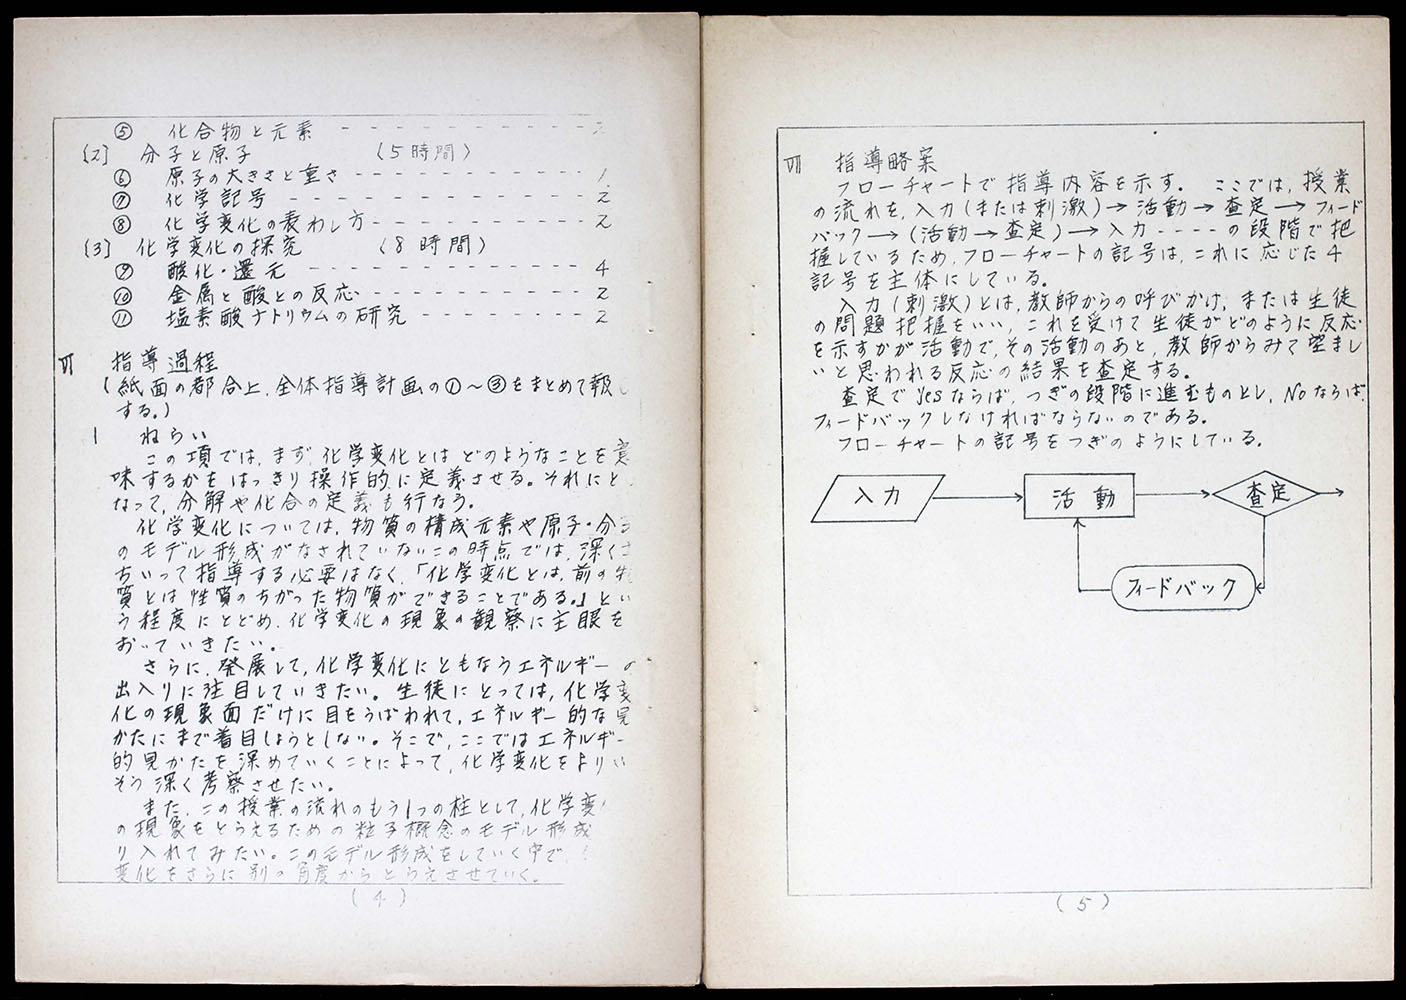 ⑤ 化合物と元素 - - - - - - - - - - -
〔2〕 分子と原子 (5時間)
⑥ 原子の大きさと重さ - - - - - - - - - - - 1
⑦ 化学記号 - - - - - - - - - - - - - - 2
⑧ 化学変化の表わし方 - - - - - - - - - - 2
〔3〕 化学変化の探究 (8時間)
⑨ 酸化・還元 - - - - - - - - - - - - - 4
⑩ 金属と酸との反応 - - - - - - - - - - - 2
⑪ 塩素酸ナトリウムの研究 - - - - - - - - 2
Ⅵ 指導過程
(紙面の都合上,全体指導計画の①〜③をまとめて報
する。)
1 ねらい
この項では,まず,化学変化とはどのようなことを意
味するかをはっきり操作的に定義させる。それにと
なって,分解や化合の定義も行なう。
化学変化については,物質の構成元素や原子・分子
のモデル形成がなされていないこの時点では,深くさ
ちいって指導する必要はなく,「化学変化とは,前の物
質とは性質のちがった物質ができることである。」とい
う程度にとどめ,化学変化の現象の観察に主眼を
おいていきたい。
さらに,発展して,化学変化にともなうエネルギーの
出入りに注目していきたい。生徒にとっては,化学変
化の現象面だけに目をうばわれて,エネルギー的な見
かたにまで着目しようとしない。そこで,ここではエネルギー
的見かたを深めていくことによって,化学変化をよりい
そう深く考察させたい。
また,この授業の流れのもう1つの柱として,化学変
の現象をとらえるための粒子概念のモデル形成
り入れてみたい。このモデル形成をしていく中で,
変化をさらに別の角度からとらえさせていく。
(4)
Ⅶ 指導略案
フローチャートで指導内容を示す。 ここでは,授業
の流れを,入力(または刺激)→活動→査定→フィード
バック→(活動→査定)→入力-----の段階で把
握しているため,フローチャートの記号は,これに応じた4
記号を主体にしている。
入力(刺激)とは,教師からの呼びかけ,または生徒
の問題把握をいい,これを受けて生徒がどのように反応
を示すかが活動で,その活動のあと,教師からみて望まし
いと思われる反応の結果を査定する。
査定でYesならば,つぎの段階に進むものとし,Noならば,
フィードバックしなければならないのである。
フローチャートの記号をつぎのようにしている。
入力
活動
査定
フィードバック
(5)